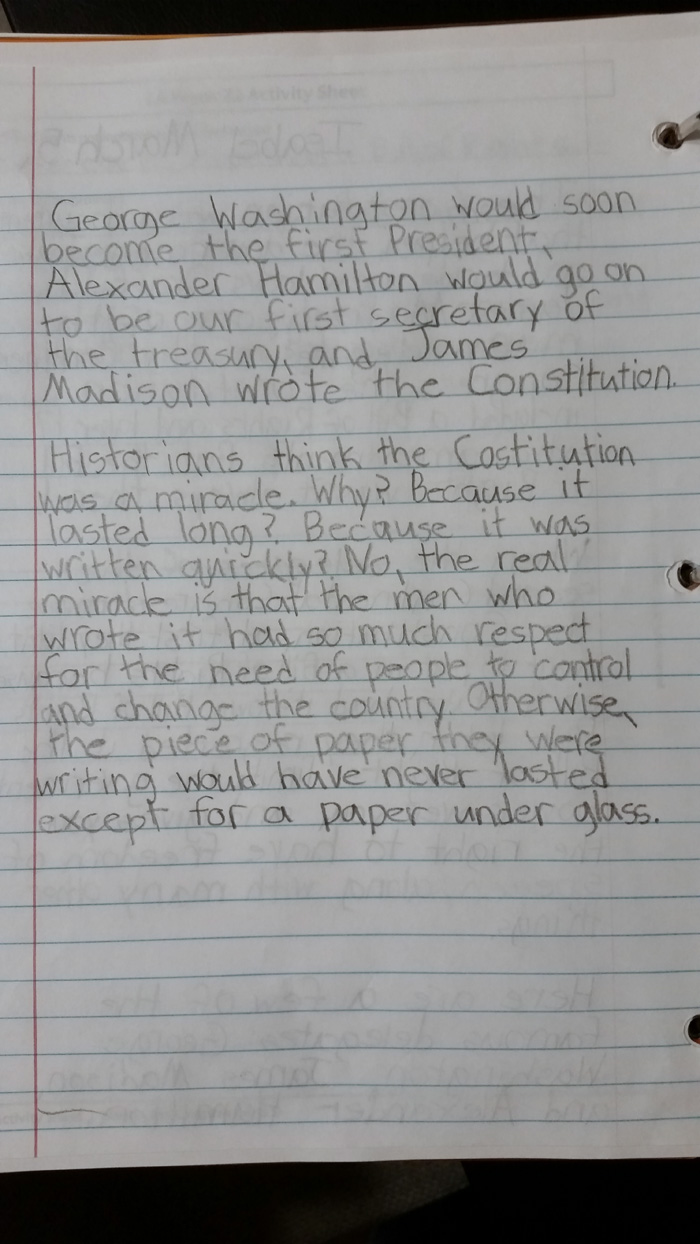 George Washington would soon
become the first President,
Alexander Hamilton would go on
to be our first secretary of
the treasury, and James
Madison wrote the Constitution.
Historians think the Costitution
was a miracle. Why? Because it
lasted long? Because it was
written quickly? No, the real
miracle is that the men who
wrote it had so much respect
for the need of people to control
and change the country Otherwise,
the piece of paper they were
writing would have never lasted
except for a paper under glass.